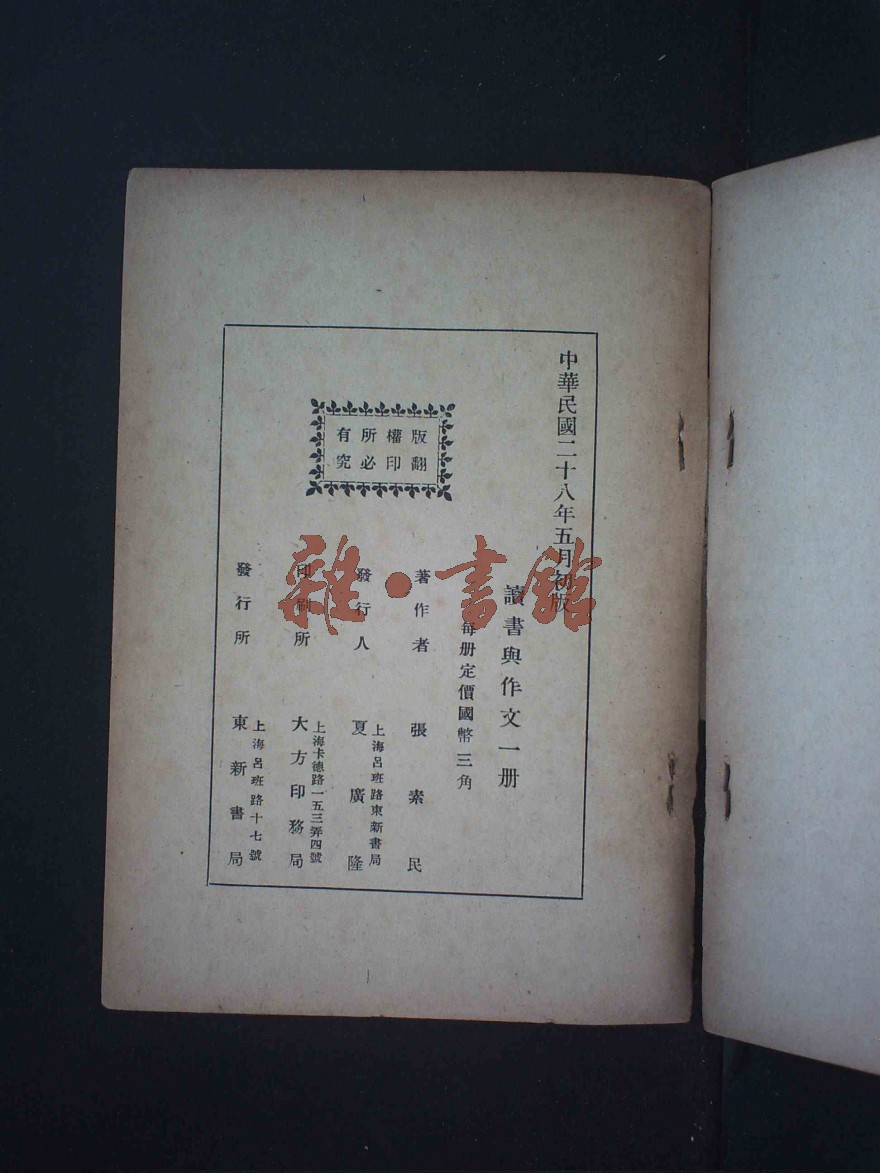 中華民國二十八年五月初版
讀書與作文一册
每册定價國幣三角
版權所有
翻印必究
著作者 張素民
上海呂班路東新書局
發行人 夏廣隆
上海卡德路一五三弄四號
印刷所 大方印務局
上海呂班路十七號
發行所 東新書局
雜·書館